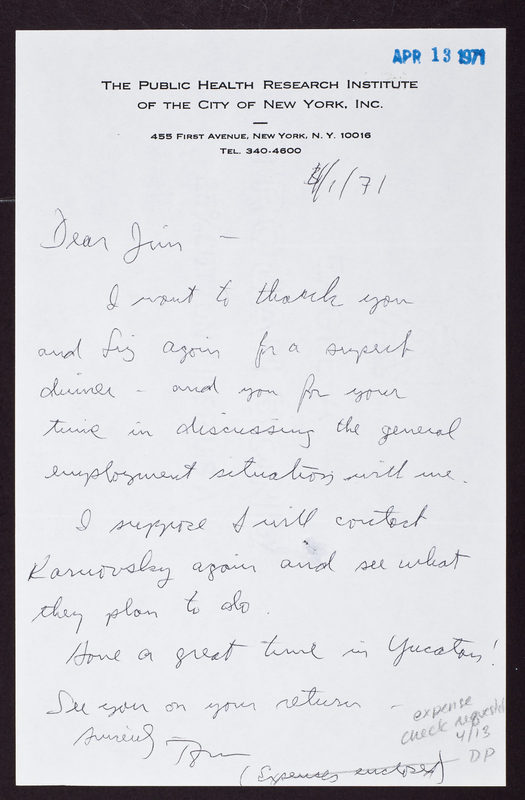 APR 13 1971
THE PUBLIC HEALTH RESEARCH INSTITUTE
OF THE CITY OF NEW YORK, INC.
455 FIRST AVENUE, NEW YORK, N. Y. 10016
TEL. 340-4600
4/1/71
Dear Jim —
I want to thank you
and Liz again for a superb
dinner - and you for your
time in discussing the general
employment situation with me.
I suppose I will contact
Karnovsky again and see what
they plan to do.
Have a great time in Yucatan!
See you on your return -
Sincerely
Tom
(Expenses enclosed)
expense
check requested
4/13
DP